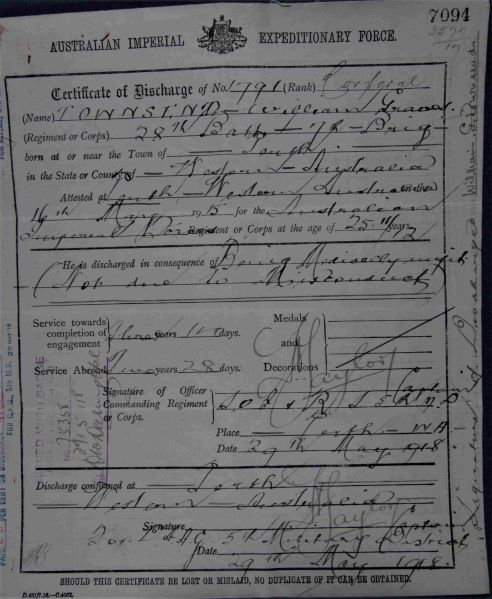 7094
3577
17
AUSTRALIAN IMPERIAL EXPEDITIONARY FORCE.
Certificate of Discharge of No. 1791 (Rank) Corporal
(Name) TOWNSEND - William
(Regiment or Corps) 28th Batt - 7th Brig -
born at or near the Town of Perth
in the State or County of Western Australia
Attested at Perth - Western Australia
16th May 1915 for the Australian
Imperial Force Regiment or Corps at the age of 25 years
He is discharged in consequence of Being Medically unfit.
(Not due to Misconduct)
Service towards completion of engagement Three years 14 days.
Service Abroad Two years 28 days.
Medals and Decorations
Taylor
Signature of Officer Commanding Regiment or Corps. Captain
Place Perth - WA
Date 29th May 1918
Discharge confirmed at Perth
Western Australia
Signature Taylor Captain
For A.A.G. 5th Military District
Date 29th May 1918.
SHOULD THIS CERTIFICATE BE LOST OR MISLAID, NO DUPLICATE OF IT CAN BE OBTAINED.
Signature of Discharged William Townsend